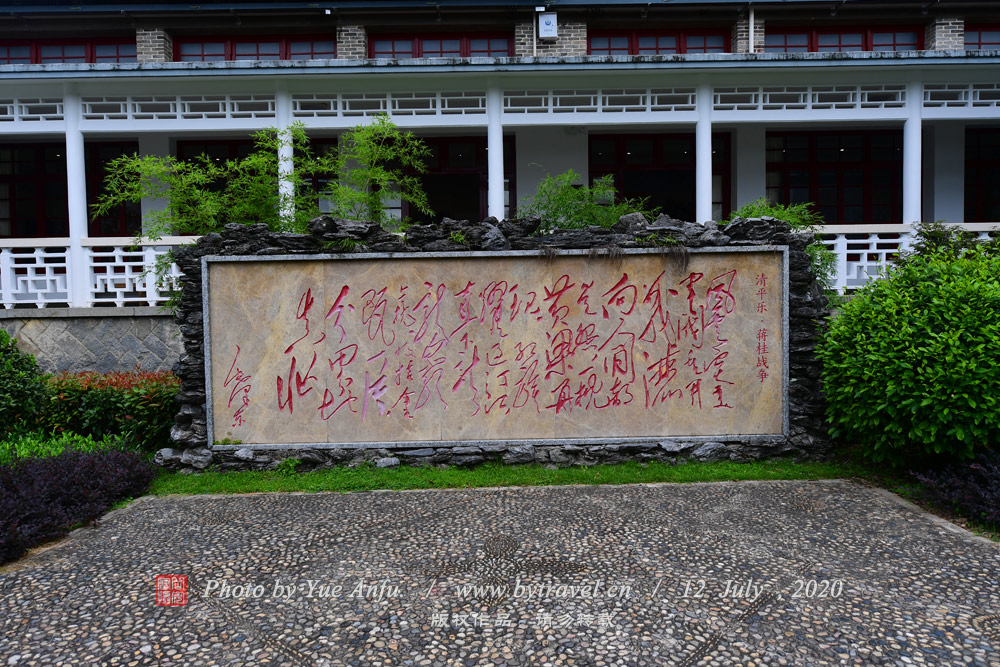 清平乐·蒋桂战争
风云突变
军阀重开
战洒
向人间都
是怨一枕
黄粱再
现红旗
跃过汀江
直下
龙岩
上杭收拾金
瓯一片
分田分地
真忙
毛泽东
Photo by Yue Anfu. / www.bytravel.cn / 12 July , 2020
版权作品 请勿转载